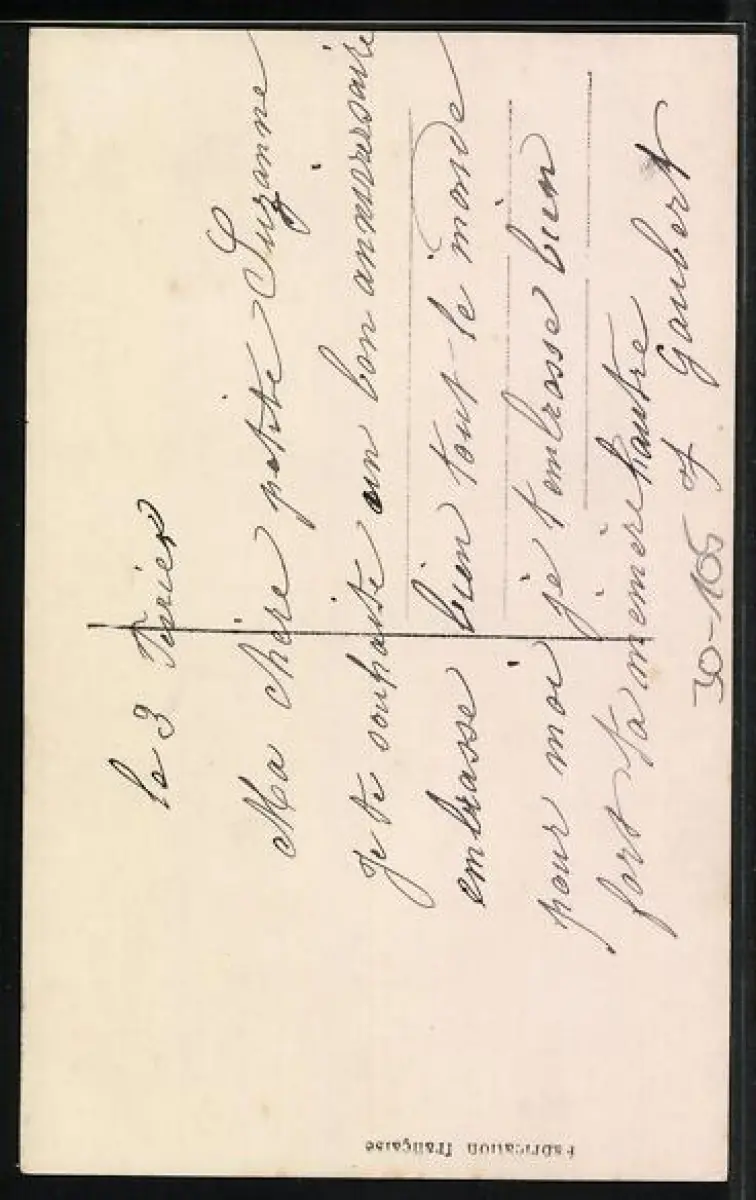 le 3 Fevrier
Ma chère petite Suzanne
Je te souhaite un bon anniversaire
embrasse bien tout le monde
pour moi je t embrasse bien
fort ta mémère
J. Gaubert
30-106
Fabrication française